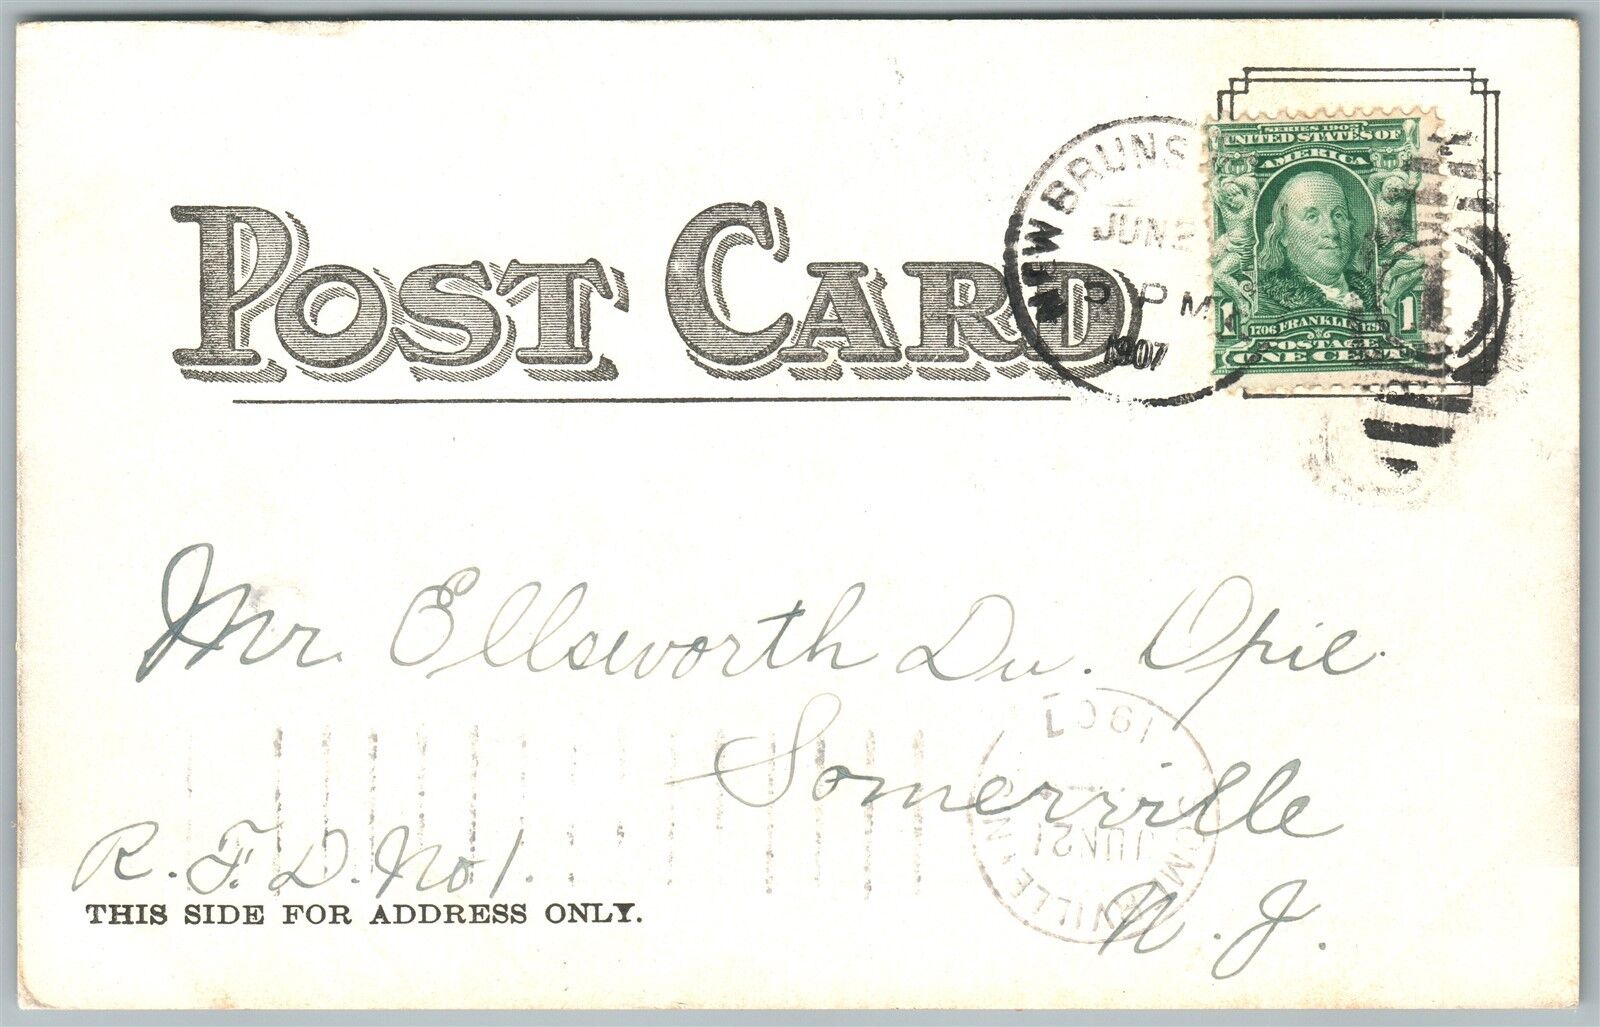 POST CARD
NEW BRUNS
JUNE 2
PM
1907
SERIES 1902
UNITED STATES OF
AMERICA
1 1
1706 FRANKLIN 1790
POSTAGE
ONE CENT
Mr. Ellsworth Du. Opie.
Somerville
R.F.D. No 1.
N. J.
THIS SIDE FOR ADDRESS ONLY.
SOMERVILLE N
JUN 21
1907